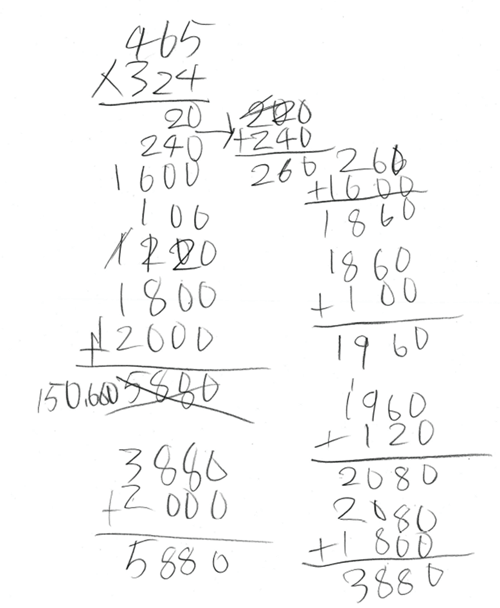 465
×324
20
240
1600
100
1220
1800
+12000
150,660 5880
3880
+2000
5880
2020
+240
260
260
+1600
1860
1860
+100
1960
1960
+120
2080
2080
+1800
3880